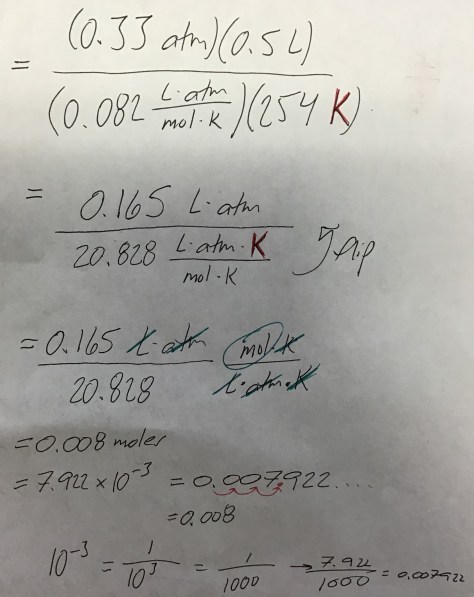 = (0.33 atm)(0.5 L)
(0.082 L·atm
mol·K )(254 K)
= 0.165 L·atm
20.828 L·atm·K
mol·K
flip
= 0.165 L·atm mol·K
20.828 L·atm·K
= 0.008 moles
= 7.922 × 10⁻³ = 0.007922....
= 0.008
10⁻³ = 1/10³ = 1/1000 → 7.922/1000 = 0.007922